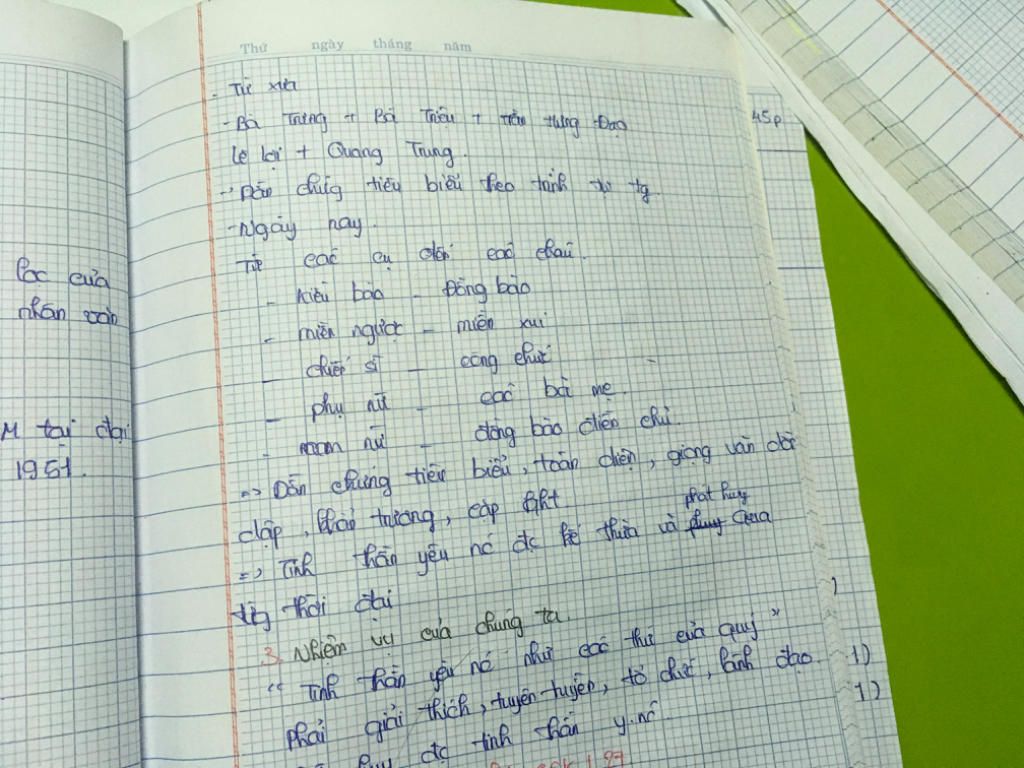 Thứ ngày tháng năm
- Từ xưa
- Bà Trưng + Bà Triệu + Trần Hưng Đạo
Lê Lợi + Quang Trung.
-> Dẫn chứng tiêu biểu theo trình tự tg
- Ngày nay.
Từ các cụ đến các cháu.
- kiều bào - Đồng bào
- miền ngược - miền xuôi
- chiến sĩ - công chức
- phụ nữ - các bà mẹ.
- nam nữ - đồng bào điền chủ.
=> Dẫn chứng tiêu biểu, toàn diện, giọng văn dồn
dập, khẩn trương, cặp
=> Tinh thần yêu nc đc kế thừa và phát huy qua
từng thời đại
3. Nhiệm vụ của chúng ta.
" Tinh thần yêu nc như các thứ của quý "
phải giải thích, tuyên truyền, tổ chức, lãnh đạo
huy đc tinh thần y.nc.
lọc của
nhân văn
M tại đại
1951.
45p
1)
1)